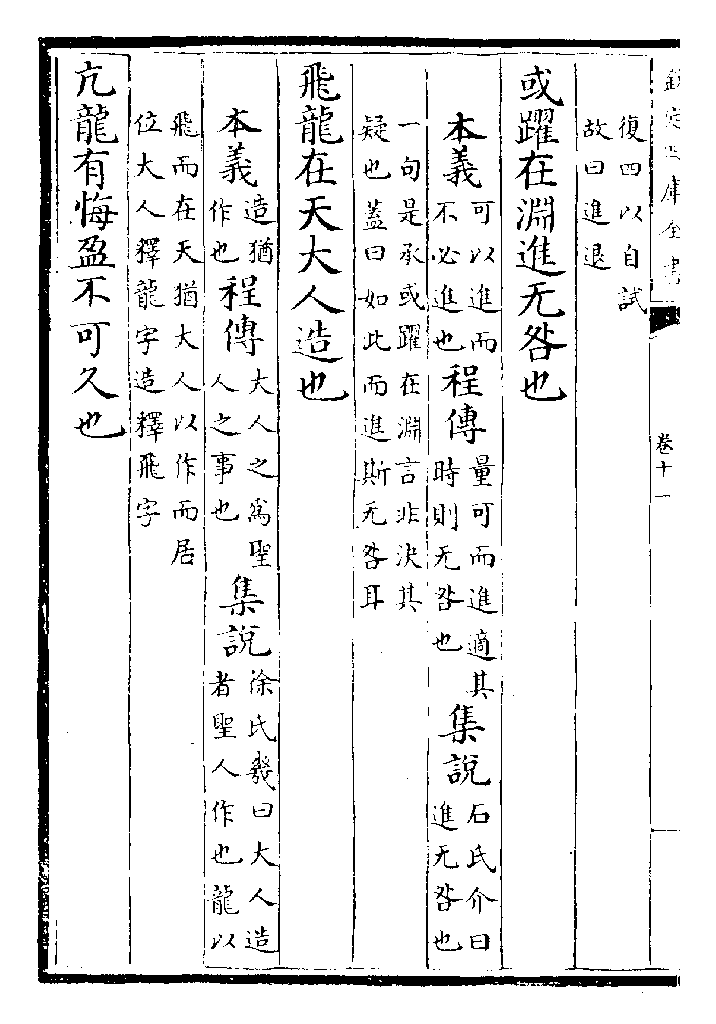 欽定四庫全書
卷十一
復四以自試
故曰進退
或躍在淵進无咎也
本義可以進而不必進也程傳量可而進適其時則无咎也集說石氏介曰進无咎也
一句是承或躍在淵言非決其
疑也蓋曰如此而進斯无咎耳
飛龍在天大人造也
本義造猶作也程傳大人之為聖人之事也集說徐氏幾曰大人造者聖人作也龍以
飛而在天猶大人以作而居
位大人釋龍字造釋飛字
亢龍有悔盈不可久也